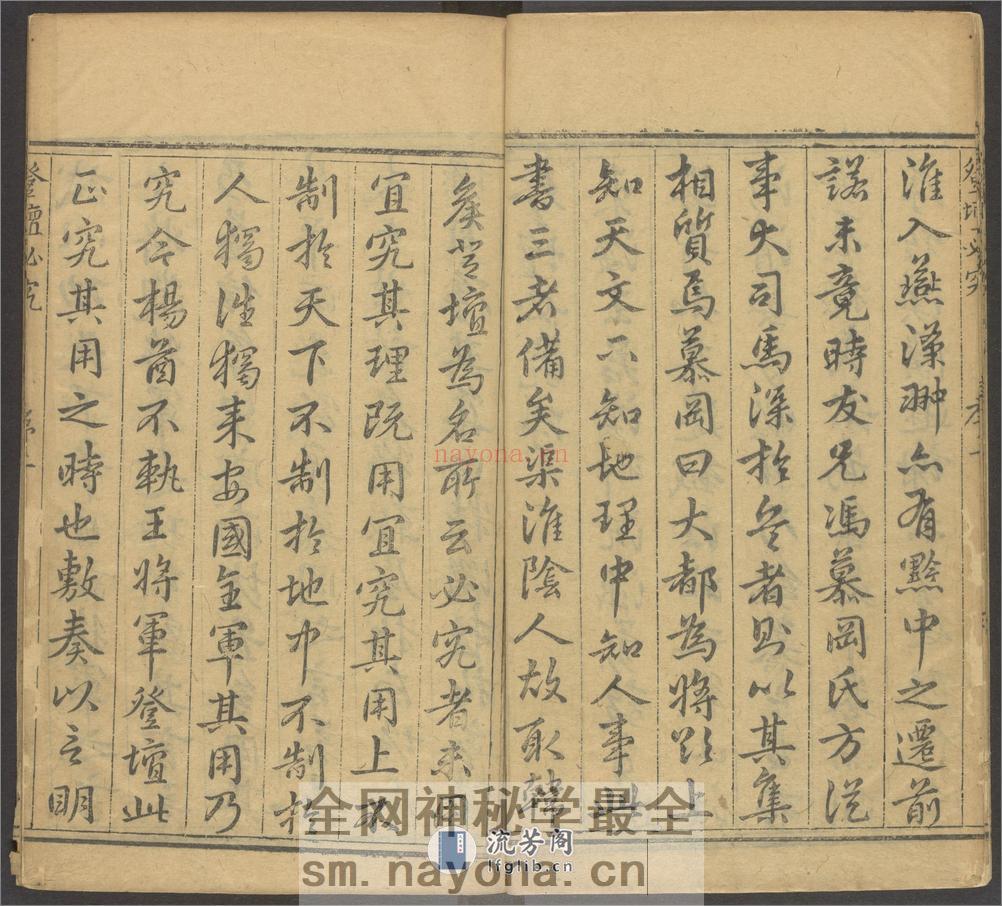 淮入燕漢翀亦有黔中之遷前
諾未竟時友兄馮慕岡氏方從
事大司馬深於兵者則以其集
相質焉慕岡曰大都為將欲上
知天文下知地理中知人事
書三者備矣渠淮陰人故取韓
侯登壇為名所云必究者未用
宜究其理既用宜究其用上不
制於天下不制於地中不制於
人獨往獨來安國全軍其用乃
究今楊酋不執王將軍登壇此
正究其用之時也敷奏以言明
登壇必究
序
登壇必究
序二
nayona.cn
全网神秘学最全
流芳阁
lfglib.cn
sm.nayona.cn